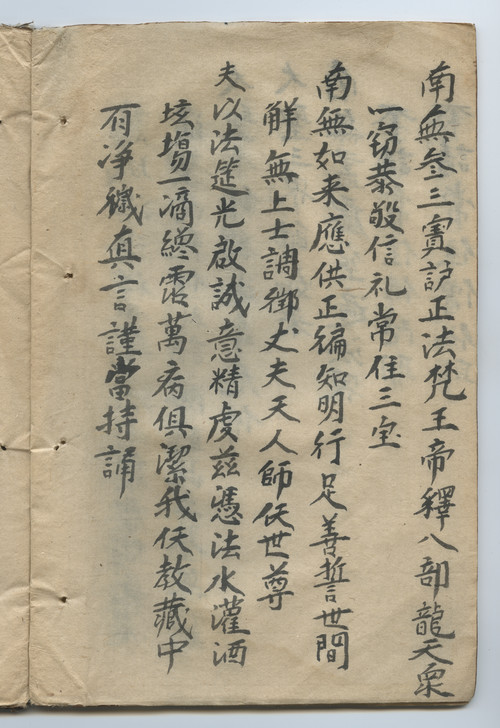 南無叄三寳護正法梵王帝釋八部龍天眾
一窃恭敬信礼常住三宝
南無如来應供正徧知明行足善誓世間
解無上士調御丈夫天人師仸世尊
夫以法筵光啟誠意精虔兹憑法水灌洒
垓塲一滴纔霑萬病俱潔我仸教藏中
有净穢真言謹當持誦